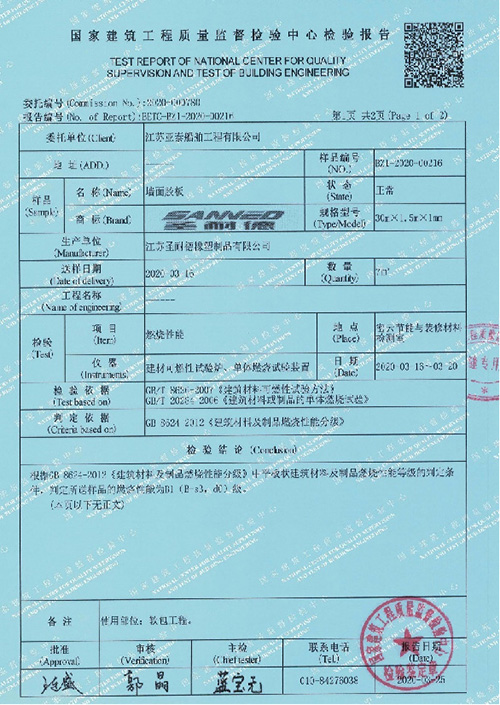 国家建筑工程质量监督检验中心检验报告
TEST REPORT OF NATIONAL CENTER FOR QUALITY
SUPERVISION AND TEST OF BUILDING ENGINEERING
委托编号(Commission No.):2020-000780
报告编号(No. of Report):BETC-BZ1-2020-00216 第1页 共2页(Page 1 of 2)
委托单位(Client) 江苏亚泰船舶工程有限公司
地 址(ADD.) ------ 样品编号(NO.) BZ1-2020-00216
样品(Sample) 名 称(Name) 墙面胶板 状 态(State) 正常
商 标(Brand) SANNEO 圣耐德 规格型号(Type/Model) 30m×1.5m×1mm
生产单位(Manufacturer) 江苏圣耐德橡塑制品有限公司
送样日期(Date of delivery) 2020-03-16 数 量(Quantity) 7㎡
工程名称(Name of engineering) ------
检验(Test) 项 目(Item) 燃烧性能 地 点(Place) 密云节能与装修材料检测室
仪 器(Instruments) 建材可燃性试验炉、单体燃烧试验装置 日 期(Date) 2020-03-16~03-20
检 验 依 据(Test based on) GB/T 8626-2007《建筑材料可燃性试验方法》
GB/T 20284-2006《建筑材料或制品的单体燃烧试验》
判 定 依 据(Criteria based on) GB 8624-2012《建筑材料及制品燃烧性能分级》
检 验 结 论 (Conclusion)
根据GB 8624-2012《建筑材料及制品燃烧性能分级》中平板状建筑材料及制品燃烧性能等级的判定条
件，判定所送样品的燃烧性能为B1（B-s3，d0）级。
(本页以下无正文)
备 注 使用部位：软包工程。
批准(Approval) 审核(Verification) 主检(Chief tester) 联系电话(Tel.) 报告日期(Date)
郭晶 蓝宝元 010-84278038 2020-03-25
国家建筑工程质量监督检验中心
检验鉴定章